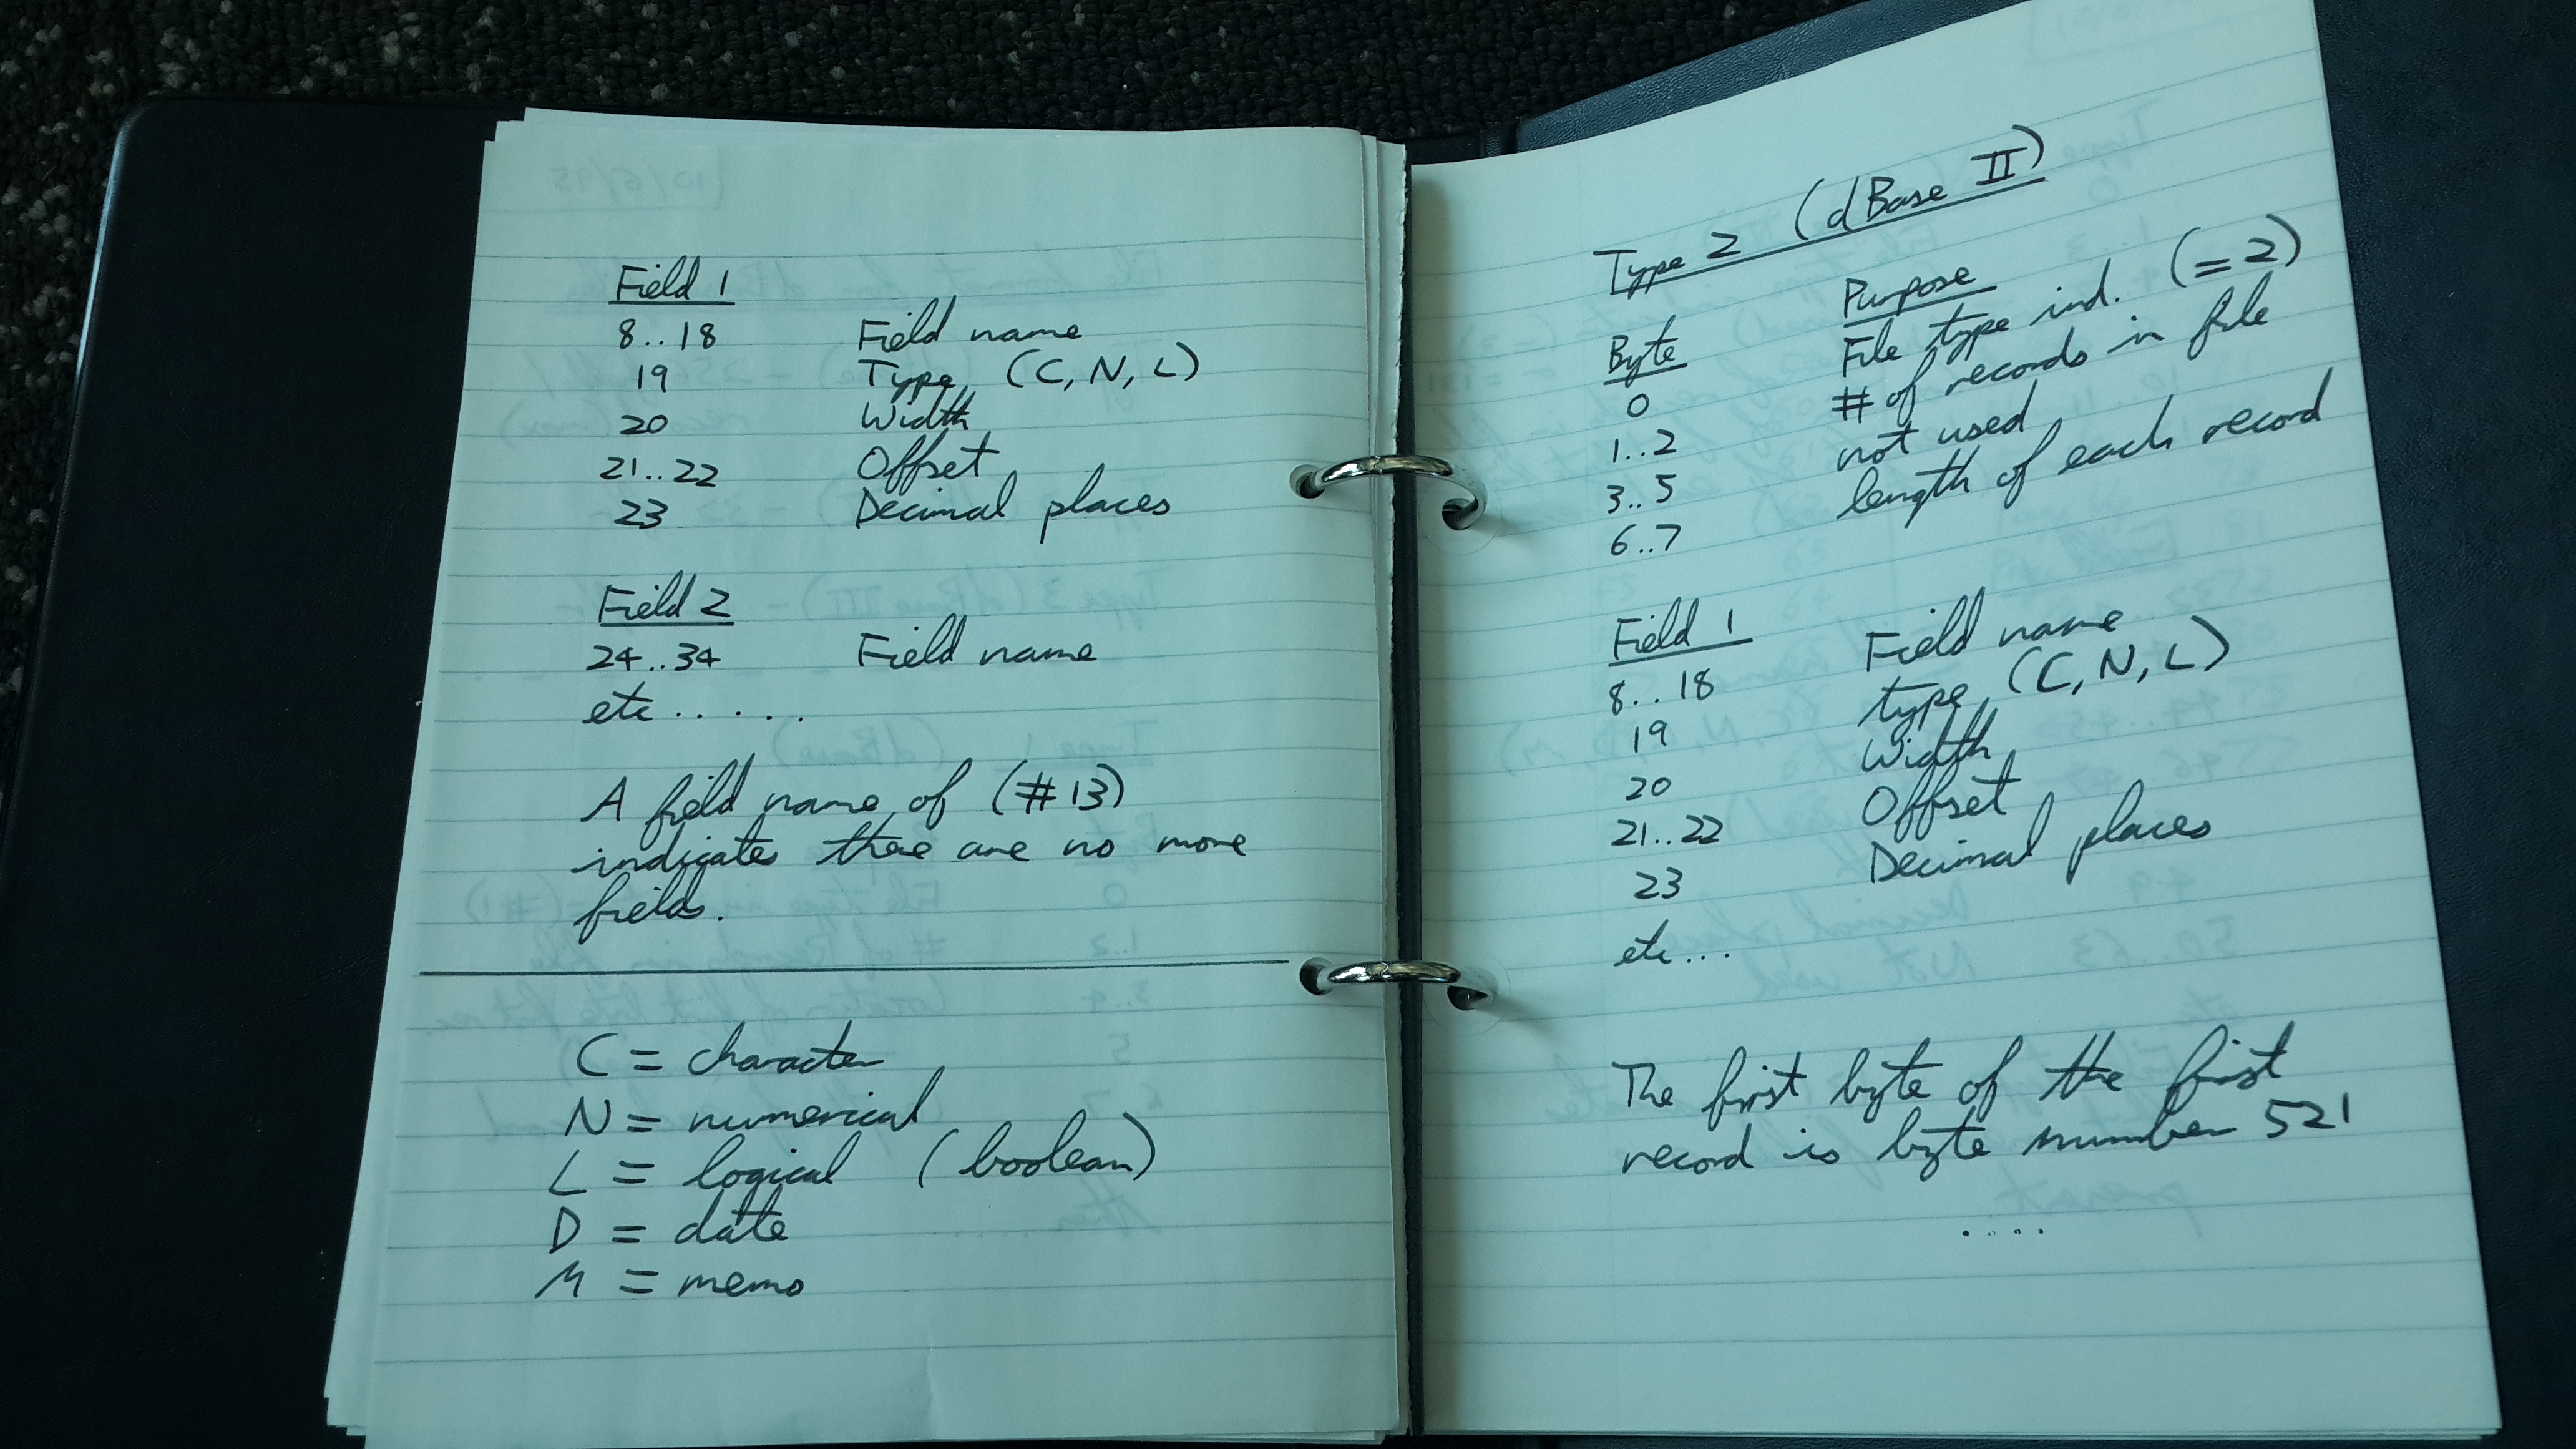 Field 1
8..18 Field name
19 Type (C, N, L)
20 Width
21..22 Offset
23 Decimal places
Field 2
24..34 Field name
etc.....
A field name of (#13)
indicates there are no more
fields.
C = character
N = numerical
L = logical (boolean)
D = date
M = memo
Type 2 (dBase II)
Byte Purpose
0 File type ind. (=2)
1..2 # of records in file
3..5 not used
6..7 length of each record
Field 1
8..18 Field name
19 type (C, N, L)
20 Width
21..22 Offset
23 Decimal places
etc...
The first byte of the first
record is byte number 521
....